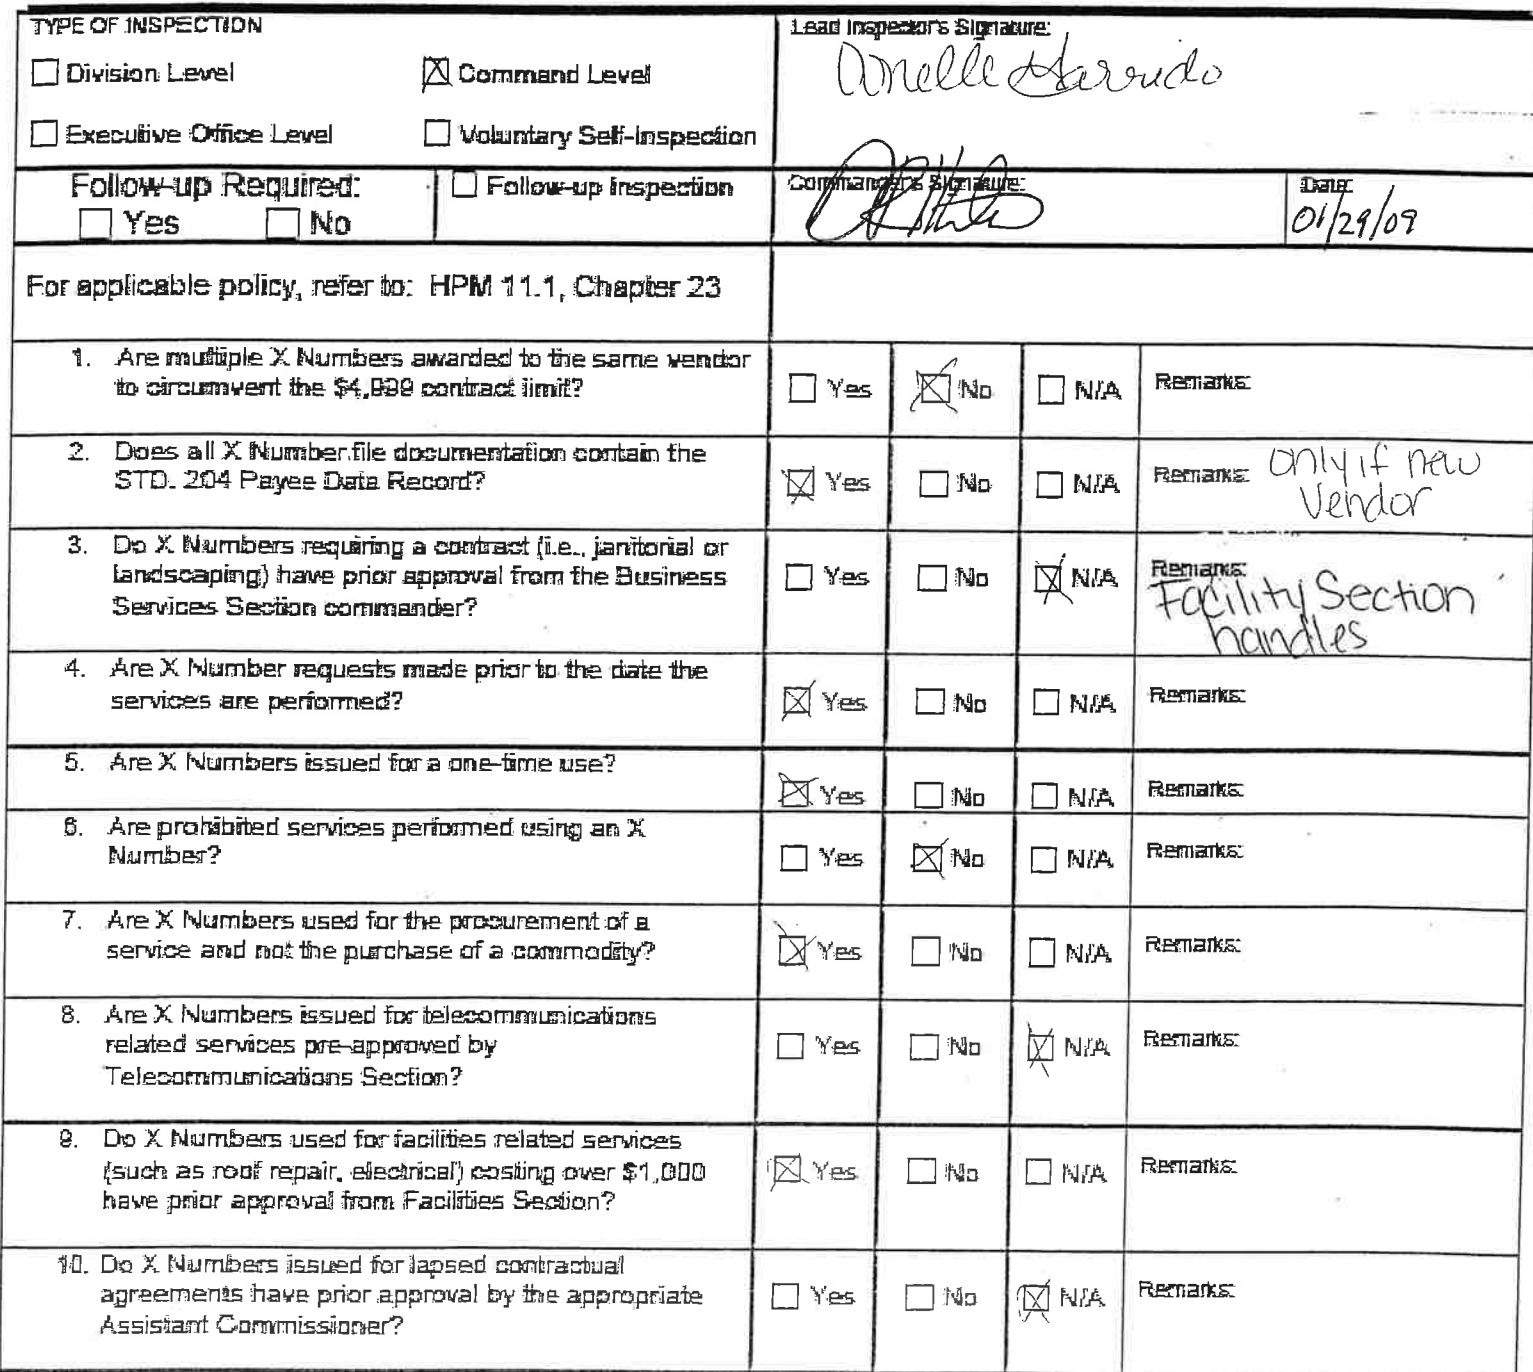 TYPE OF INSPECTION
☐ Division Level ☒ Command Level
☐ Executive Office Level ☐ Voluntary Self-Inspection
Lead Inspector's Signature:
Follow-up Required:
☐ Yes ☐ No
☐ Follow-up Inspection
Commander's Signature:
Date:
01/29/09
For applicable policy, refer to: HPM 11.1, Chapter 23
1. Are multiple X Numbers awarded to the same vendor
to circumvent the $4,999 contract limit?
☐ Yes ☒ No ☐ N/A Remarks:
2. Does all X Number file documentation contain the
STD. 204 Payee Data Record?
☒ Yes ☐ No ☐ N/A Remarks: only if new
Vendor
3. Do X Numbers requiring a contract (i.e., janitorial or
landscaping) have prior approval from the Business
Services Section commander?
☐ Yes ☐ No ☒ N/A Remarks:
Facility Section
handles
4. Are X Number requests made prior to the date the
services are performed?
☒ Yes ☐ No ☐ N/A Remarks:
5. Are X Numbers issued for a one-time use?
☒ Yes ☐ No ☐ N/A Remarks:
6. Are prohibited services performed using an X
Number?
☐ Yes ☒ No ☐ N/A Remarks:
7. Are X Numbers used for the procurement of a
service and not the purchase of a commodity?
☒ Yes ☐ No ☐ N/A Remarks:
8. Are X Numbers issued for telecommunications
related services pre-approved by
Telecommunications Section?
☐ Yes ☐ No ☒ N/A Remarks:
9. Do X Numbers used for facilities related services
(such as roof repair, electrical) costing over $1,000
have prior approval from Facilities Section?
☒ Yes ☐ No ☐ N/A Remarks:
10. Do X Numbers issued for lapsed contractual
agreements have prior approval by the appropriate
Assistant Commissioner?
☐ Yes ☐ No ☒ N/A Remarks: